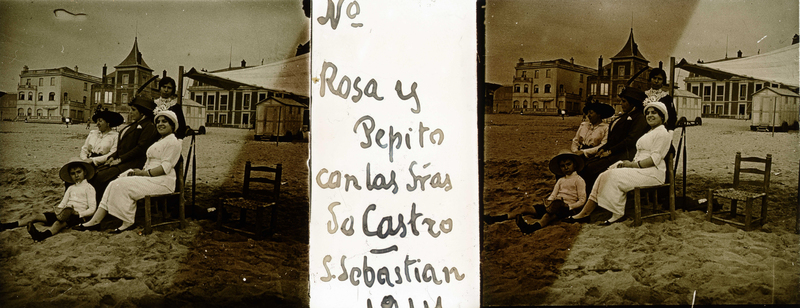 Nº
Rosa y
Pepito
con las Srás
So Castro
S. Sebastian
1914